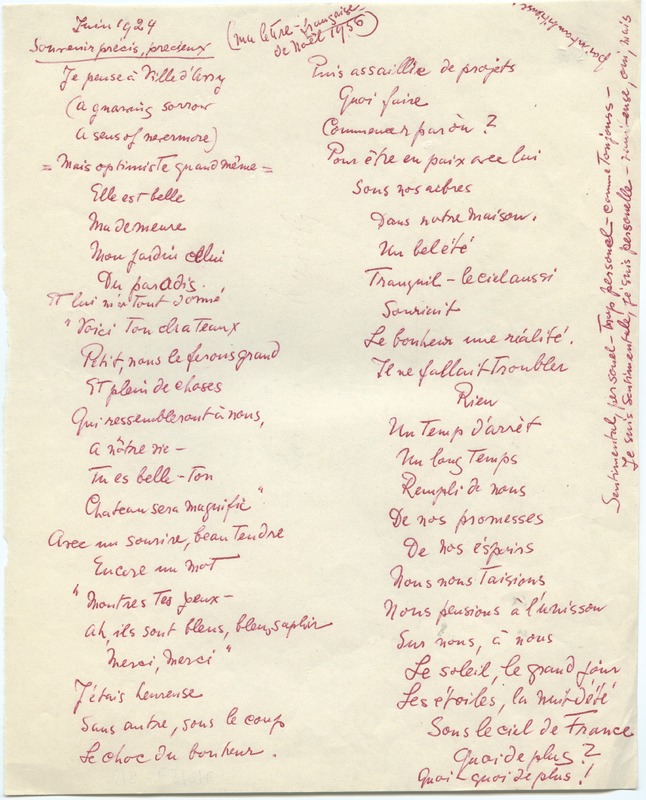 Juin 1924
Souvenir précis, precieux
(ma lettre - française
de Noël 1956)
Je pense à Ville d'Avray
(a gnawing sorrow
a sens of nevermore)
= Mais optimiste grand même =
Elle est belle
Ma demeure
Mon jardin celui
Du paradis.
Et lui m'a tout donné
"Voici ton chateaux
Petit, nous le ferons grand
Et plein de choses
Qui ressembleront à nous,
a nôtre vie -
Tu es belle - Ton
Chateau sera magnific"
Avec un sourire, beau tendre
Encore un mot
"Montres tes yeux -
Ah, ils sont bleus, bleu saphir
Merci, merci"
J'étais heureuse
Sans autre, sous le coup
Le choc du bonheur.
Puis assaillie de projets
Quoi faire
Commencer par òu ?
Pour être en paix avec lui
Sous nos arbres
Dans notre maison.
Un bel été
Tranquil - le ciel aussi
Souriait
Le bonheur une réalité.
Il ne fallait troubler
Rien
Un temps d'arrêt
Un long temps
Rempli de nous
De nos promesses
De nos éspoirs
Nous nous taisions
Nous pensions à l'unisson
Sur nous, à nous
Le soleil, le grand jour
Les étoiles, la nuit d'été
Sous le ciel de France
Quoi de plus ?
Quoi - quoi de plus !
Sentimental, personel - trop personel - comme toujours -
Je suis sentimentale, je suis personelle - oui, mais